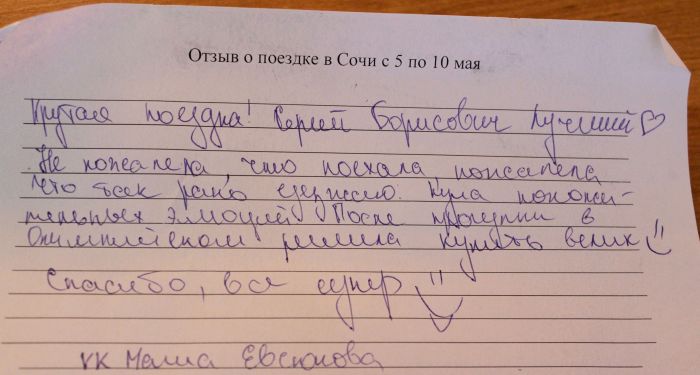 Отзыв о поездке в Сочи с 5 по 10 мая
Крутая поездка! Сергей Борисович лучший♡
Не пожалела, что поехала, пожалела,
что так рано уезжаю. Куча положи-
тельных эмоций. После прогулки в
Олимпийском решила купить велик
Спасибо, все супер
VK Маша Евсюкова